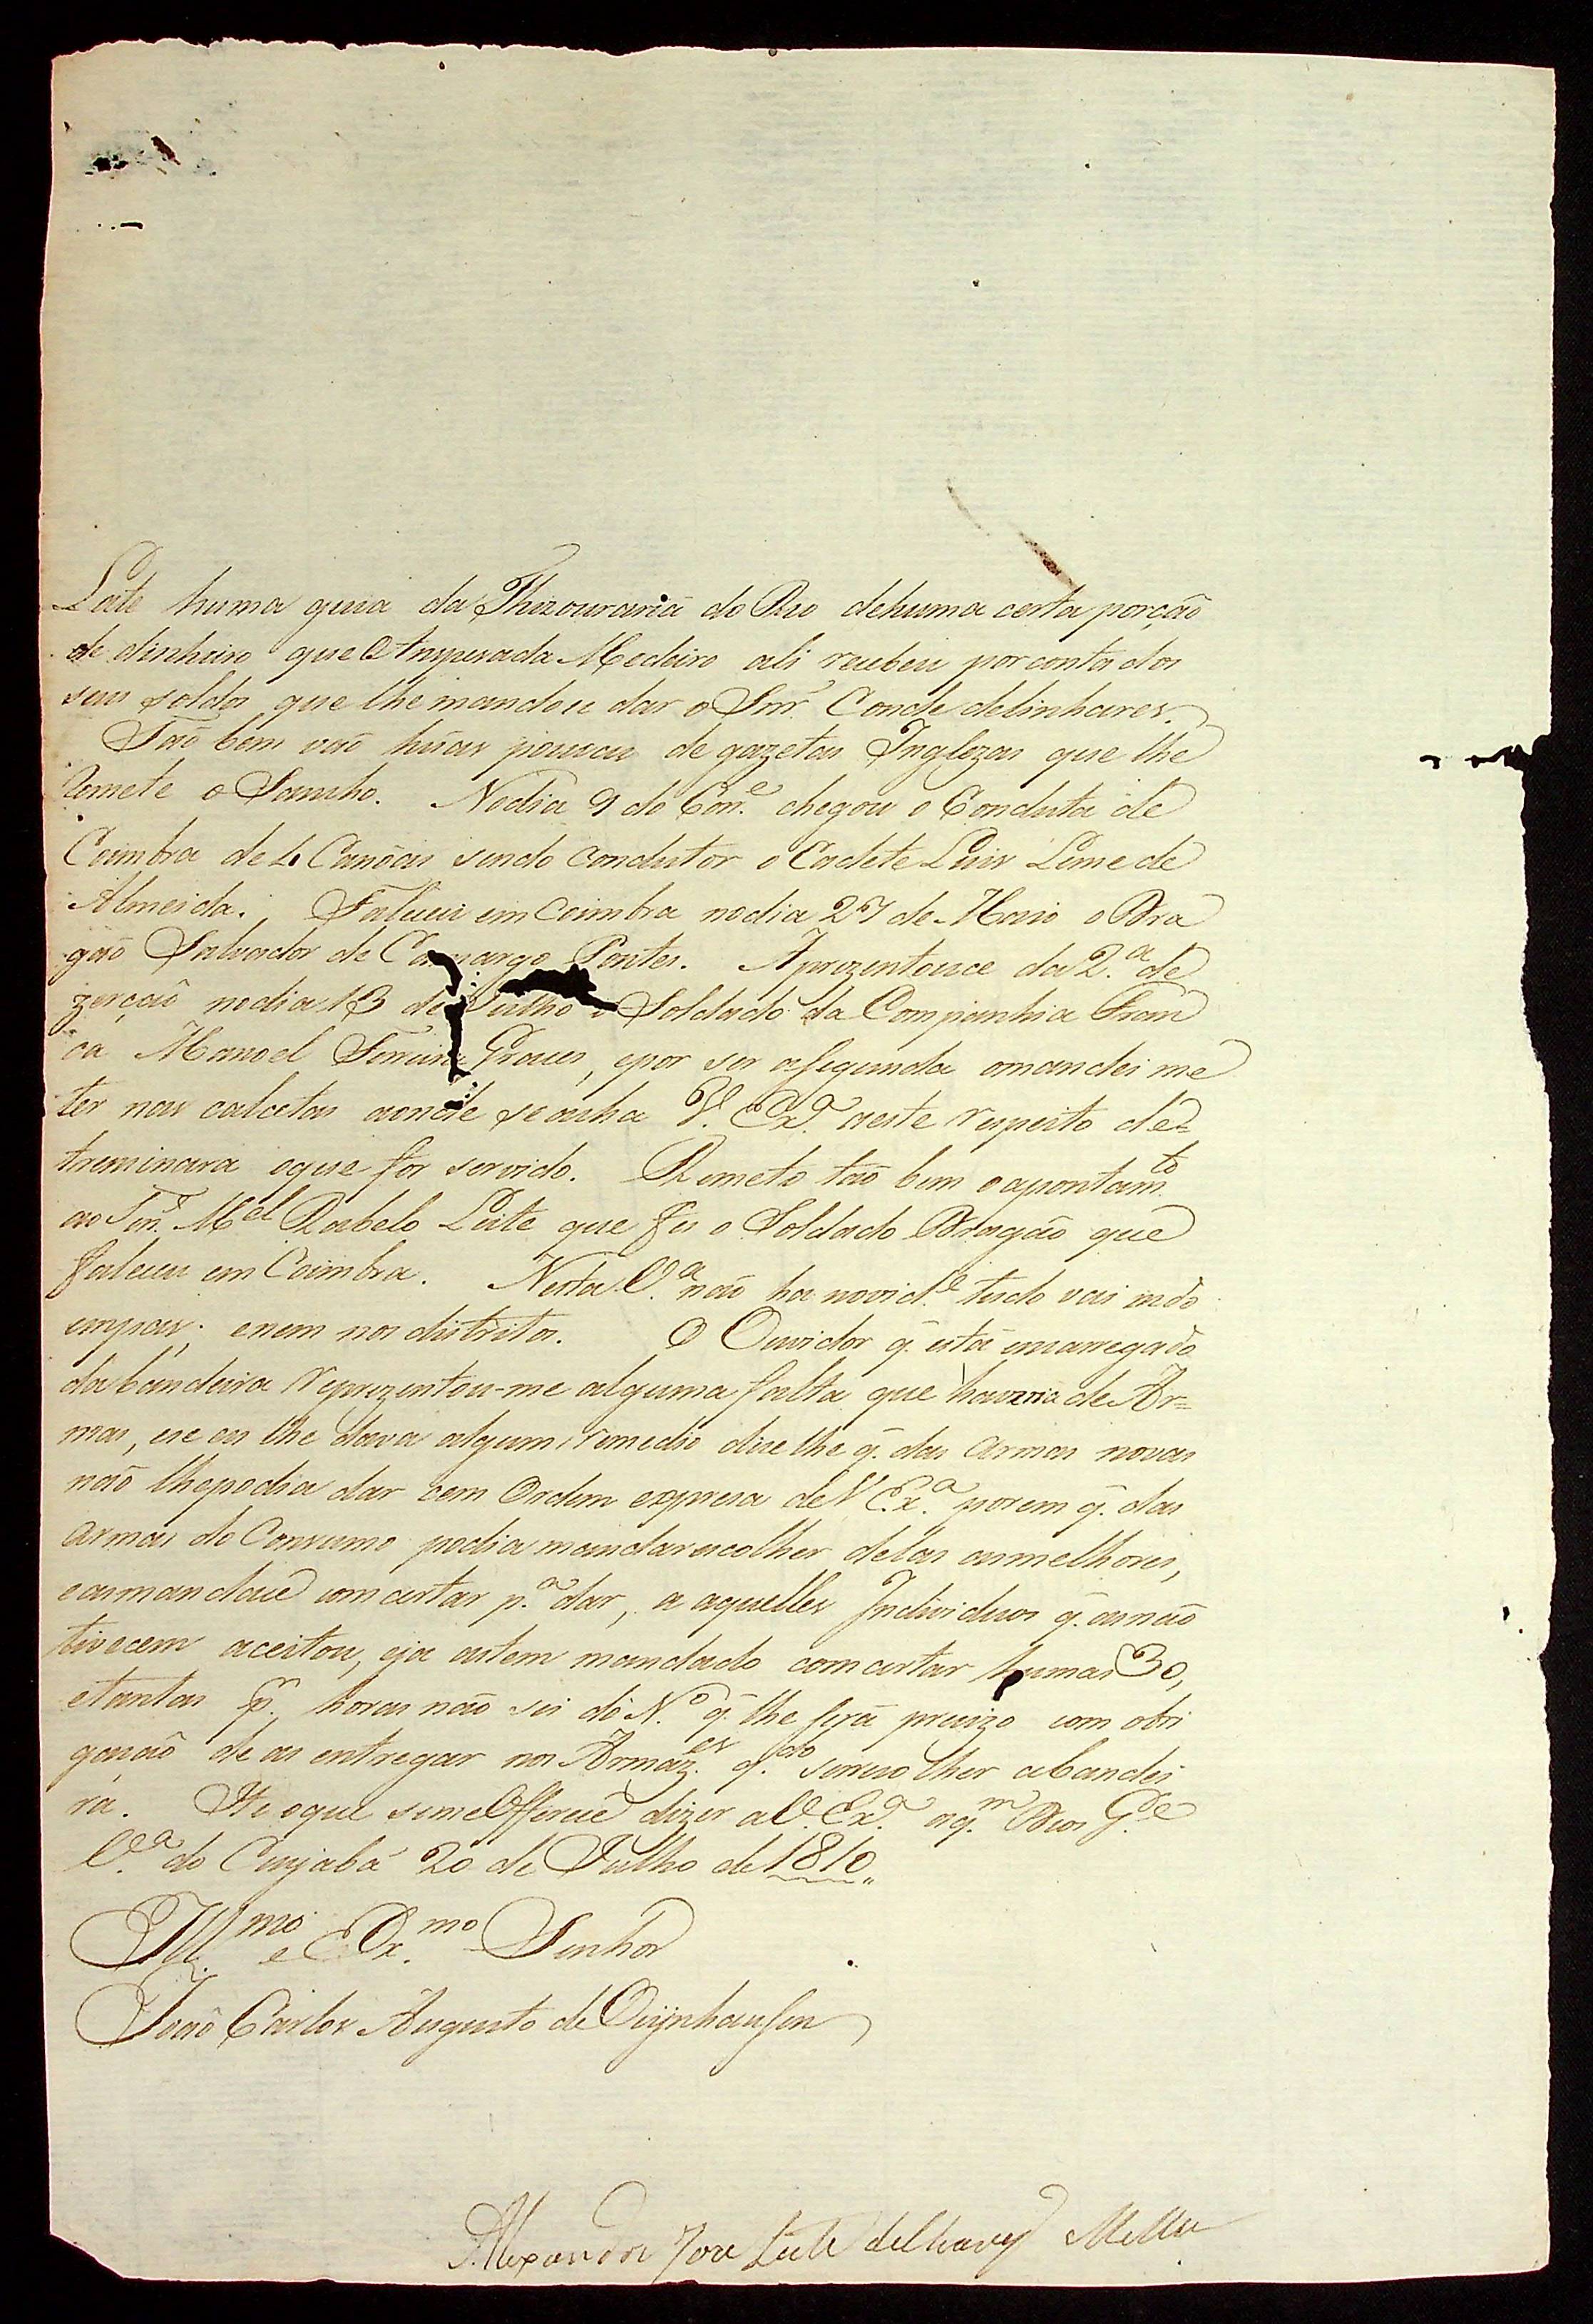 Leite huma guia da Thizouraria do Rio dehuma certa porção
de dinheiro que o Anspesada Medeiro ali recebeu por conta dos
seus soldos que lhe mandou dar o Snr. Conde delinhares.
Taõ bem vaõ huãs poucas de gazetas Inglezas que lhe
Remete o Sancho. Nodia 9 do Corr.e chegou o Conduta de
Coimbra de 4 Canôas sendo condutor o Cadete Luis Leme de
Almeida. Faleceu em Coimbra nodia 27 de Maio o Dra
gaõ Salvador de Camargo Pontes. Aprezentouce da 2.a de
zerçaõ nodia 13 de Julho o Soldado da Companhia Fran
ca Manoel Ferreira, epor ser asegunda omandei me
ter nas calcetas aonde seacha V. Ex.a aeste respeito de=
treminara oque for servido. Remeto taõ bem o apontam.to
ao Ten.e M.el Rabelo Leite que fes o Soldado Dragaõ que
faleceu em Coimbra. Nesta V.a naõ ha novid.e tudo vai indo
empas, enem nos distritos. O Ouvidor q. está emcarregado
dabandeira Reprezentou-me alguma falta que haveria de Ar=
mas, ese eu lhe dava algum remedio dise lhe q. das armas novas
naõ lhepodia dar cem Ordem expresa de V Ex.a porem q. das
armas do Consumo podia mandarescolher delas asmelhores,
easmandace comcertar p.a dar, a aquelles Individuos q. asnaõ
tivecem aceitou, eja astem mandado comcertar humas 30,
etantas p.r horas naõ sei do N.o q. lhe será precizo com obri
gaçaõ de as entregar nos Armaz.es q.do serecolher abandei
ra. He oque semeOfferece dizer a V. Ex.a aq.m Deos G.de
V.a do Cuyabá 20 de Julho de 1810.
Ill.mo e Ex.mo Senhor
Joaõ Carlos Augusto de Oeynhausen
Alexandre Joze Leite de Chaves Mello